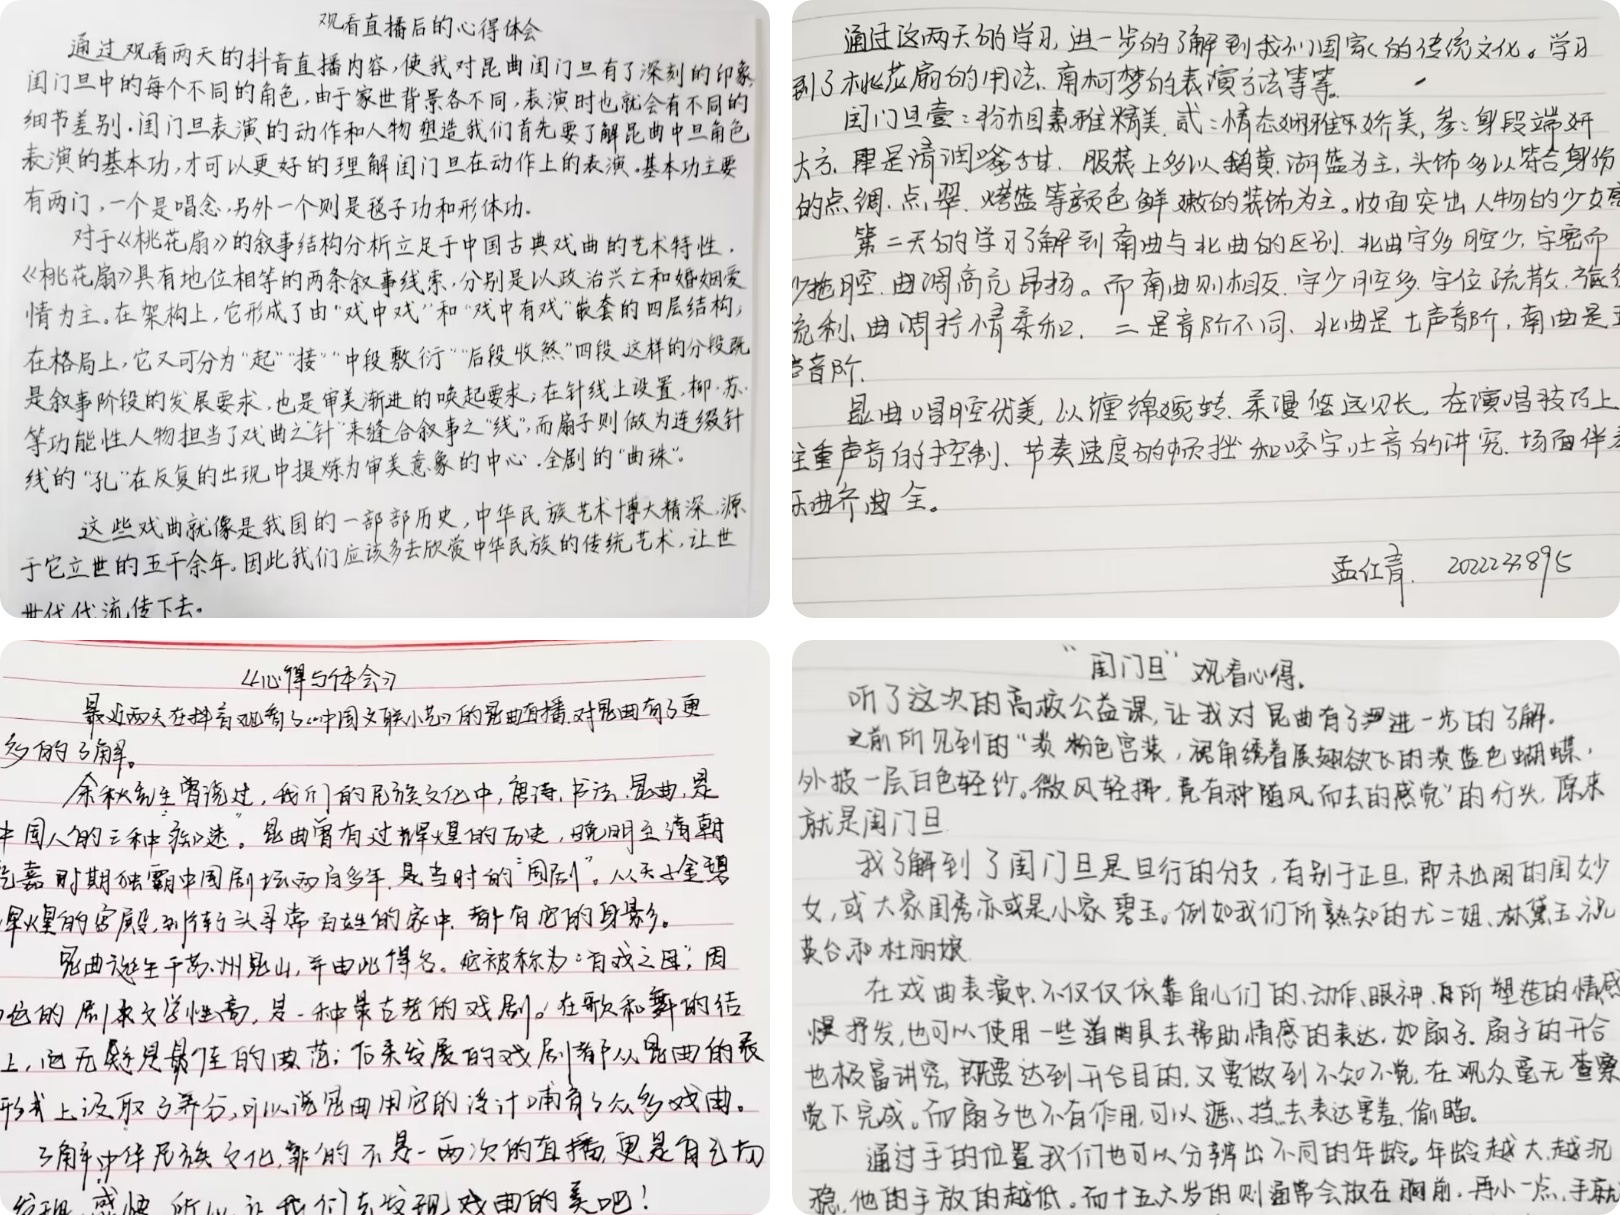 观看直播后的心得体会
通过观看两天的抖音直播内容,使我对昆曲闺门旦有了深刻的印象
闺门旦中的每个不同的角色,由于家世背景各不同,表演时也就会有不同的
细节差别.闺门旦表演的动作和人物塑造我们首先要了解昆曲中旦角色
表演的基本功,才可以更好的理解闺门旦在动作上的表演。基本功主要
有两门,一个是唱念,另外一个则是毯子功和形体功.
对于《桃花扇》的叙事结构分析立足于中国古典戏曲的艺术特性,
《桃花扇》具有地位相等的两条叙事线索,分别是以政治兴亡和婚姻爱
情为主。在架构上,它形成了由“戏中戏”和“戏中有戏”嵌套的四层结构;
在格局上,它又可分为“起”“接”“中段敷衍”“后段收煞”四段,这样的分段既
是叙事阶段的发展要求,也是审美渐进的唤起要求;在针线上设置,柳·苏·
等功能性人物担当了戏曲之“针”来缝合叙事之“线”,而扇子则做为连缀针
线的“孔”在反复的出现中提炼为审美意象的中心、全剧的“曲珠”。
这些戏曲就像是我国的一部部历史,中华民族艺术博大精深,源
于它立世的五千余年。因此我们应该多去欣赏中华民族的传统艺术,让世
世代代流传下去。
通过这两天的学习,进一步的了解到我们国家的传统文化。学习
到了桃花扇的用法、南柯梦的表演方法等等。
闺门旦壹:扮相素雅精美,贰:情态娴雅娇美,参:身段端妍
大方,肆是清润甘.服装上多以鹅黄,湖蓝为主,头饰多以符合身份
的点绸、点翠、烤蓝等颜色鲜嫩的装饰为主。妆面突出人物的少女
第二天的学习了解到南曲与北曲的区别,北曲字多腔少,字密而
少拖腔,曲调高亢昂扬。而南曲则相反,字少腔多,字位疏散,
流利,曲调抒情柔和,二是音阶不同,北曲是七声音阶,南曲是五
声音阶.
昆曲唱腔优美,以缠绵婉转、柔漫悠远见长,在演唱技巧上
注重声音的控制、节奏速度的顿挫和咬字吐音的讲究,场面伴奏
乐曲齐全。
孟红青. 2022233895
《心得与体会》
最近两天在抖音观看了《中国文联小艺》的昆曲直播,对昆曲有了更
多的了解。
余秋雨先生曾说过,我们的民族文化中,唐诗、书法、昆曲,是
中国人的三种“痴迷”。昆曲曾有过辉煌的历史,晚明至清朝
乾嘉时期独霸中国剧坛两百多年,是当时的“国剧”。从天子金碧
辉煌的宫殿,到街头寻常百姓的家中,都有它的身影。
昆曲诞生于苏州昆山,并由此得名。它被称为:“百戏之母”,因
它的剧本文学性高,是一种最古老的戏剧。在歌和舞的结
上,它无疑是最佳的典范;后来发展的戏剧都从昆曲的表
形式上汲取了养分,可以说昆曲用它的设计哺育了众多戏曲。
了解中华民族文化,靠的不是一两次的直播,更是自己切
发现,感悟,所以,让我们去发现戏曲的美吧!
“闺门旦”观看心得.
听了这次的高校公益课,让我对昆曲有了进一步的了解.
之前所见到的“淡粉色宫装,裙角绣着展翅欲飞的淡蓝色蝴蝶,
外披一层白色轻纱。微风轻拂,竟有种随风而去的感觉”的行头,原来
就是闺门旦
我了解到了闺门旦是旦行的分支,有别于正旦,即未出阁的闺妙
女,或大家闺秀亦或是小家碧玉。例如我们所熟知的尤二姐、林黛玉、祝
英台和杜丽娘.
在戏曲表演中,不仅仅依靠角儿们的、动作、眼神、所塑造的情感
抒发,也可以使用一些道具去帮助情感的表达,如扇子.扇子的开合
也极富讲究,既要达到开合目的,又要做到不知不觉,在观众毫无查察
觉下完成。而扇子也不有作用,可以遮、挡、去表达害羞、偷瞄。
通过手的位置我们也可以分辨出不同的年龄。年龄越大,越沉
稳,他的手放的越低。而十五六岁的则通常会放在胸前.再小一点,手就